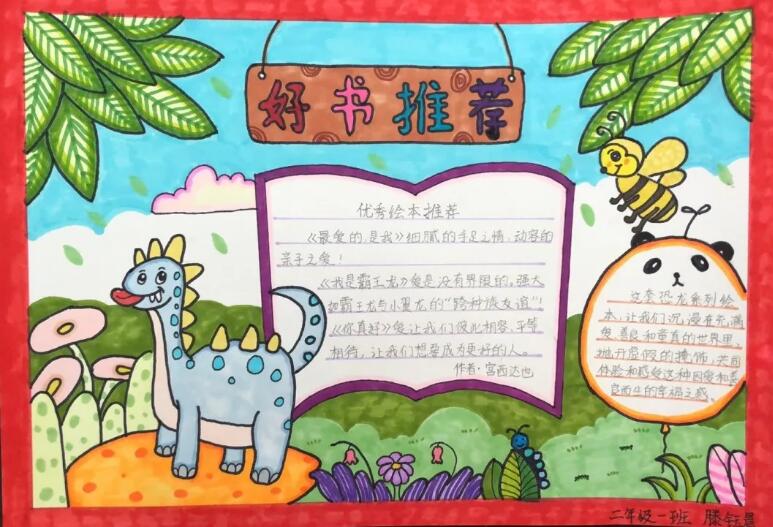 好书推荐
优秀绘本推荐
《最爱的是我》细腻的手足之情，动容的
亲子之爱！
《我是霸王龙》爱是没有界限的，强大
如霸王龙与小翼龙的“跨种族友谊”！
《你真好》爱让我们彼此相容、平等
相待，让我们想要成为更好的人。
作者·宫西达也
这套恐龙系列绘
本，让我们沉浸在充满
爱、善良和童真的世界里，
抛开虚假的掩饰，共同
体验和感受这种因爱和善
良而生的幸福之感、
二年级一班 滕